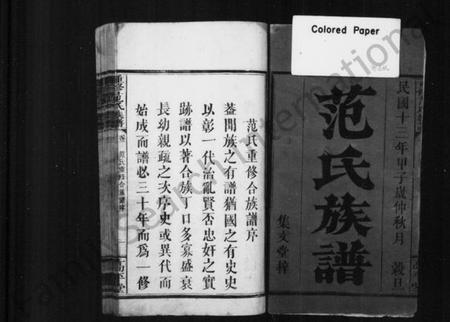 Colored Paper
民國十三年甲子歲仲秋月 穀旦
范氏族譜
集文堂梓
范氏重修合族譜序
蓋聞族之有譜猶國之有史史
以彰一代治亂賢否忠奸之實
跡譜以著合族丁口多寡盛衰
長幼親疏之次序史或異代而
始成而譜必三十年而為一修